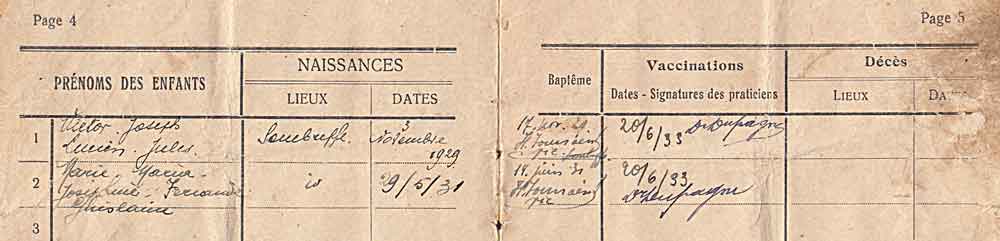 Page 4
PRÉNOMS DES ENFANTS
NAISSANCES
LIEUX
DATES
1
Victor Joseph
Lucien Jules.
Sombreffe
3 Novembre
1929
2
Marie - Maria
Joséphine - Fernande
Ghislaine
id
9/5/31
3
Page 5
Baptême
Vaccinations
Dates - Signatures des praticiens
Décès
LIEUX
17 nov. 29
H. Toussaint
vic
20/6/33 Dr Dupagne
14 juin 31
H. Toussaint
vic
20/6/33
Dr Dupagne